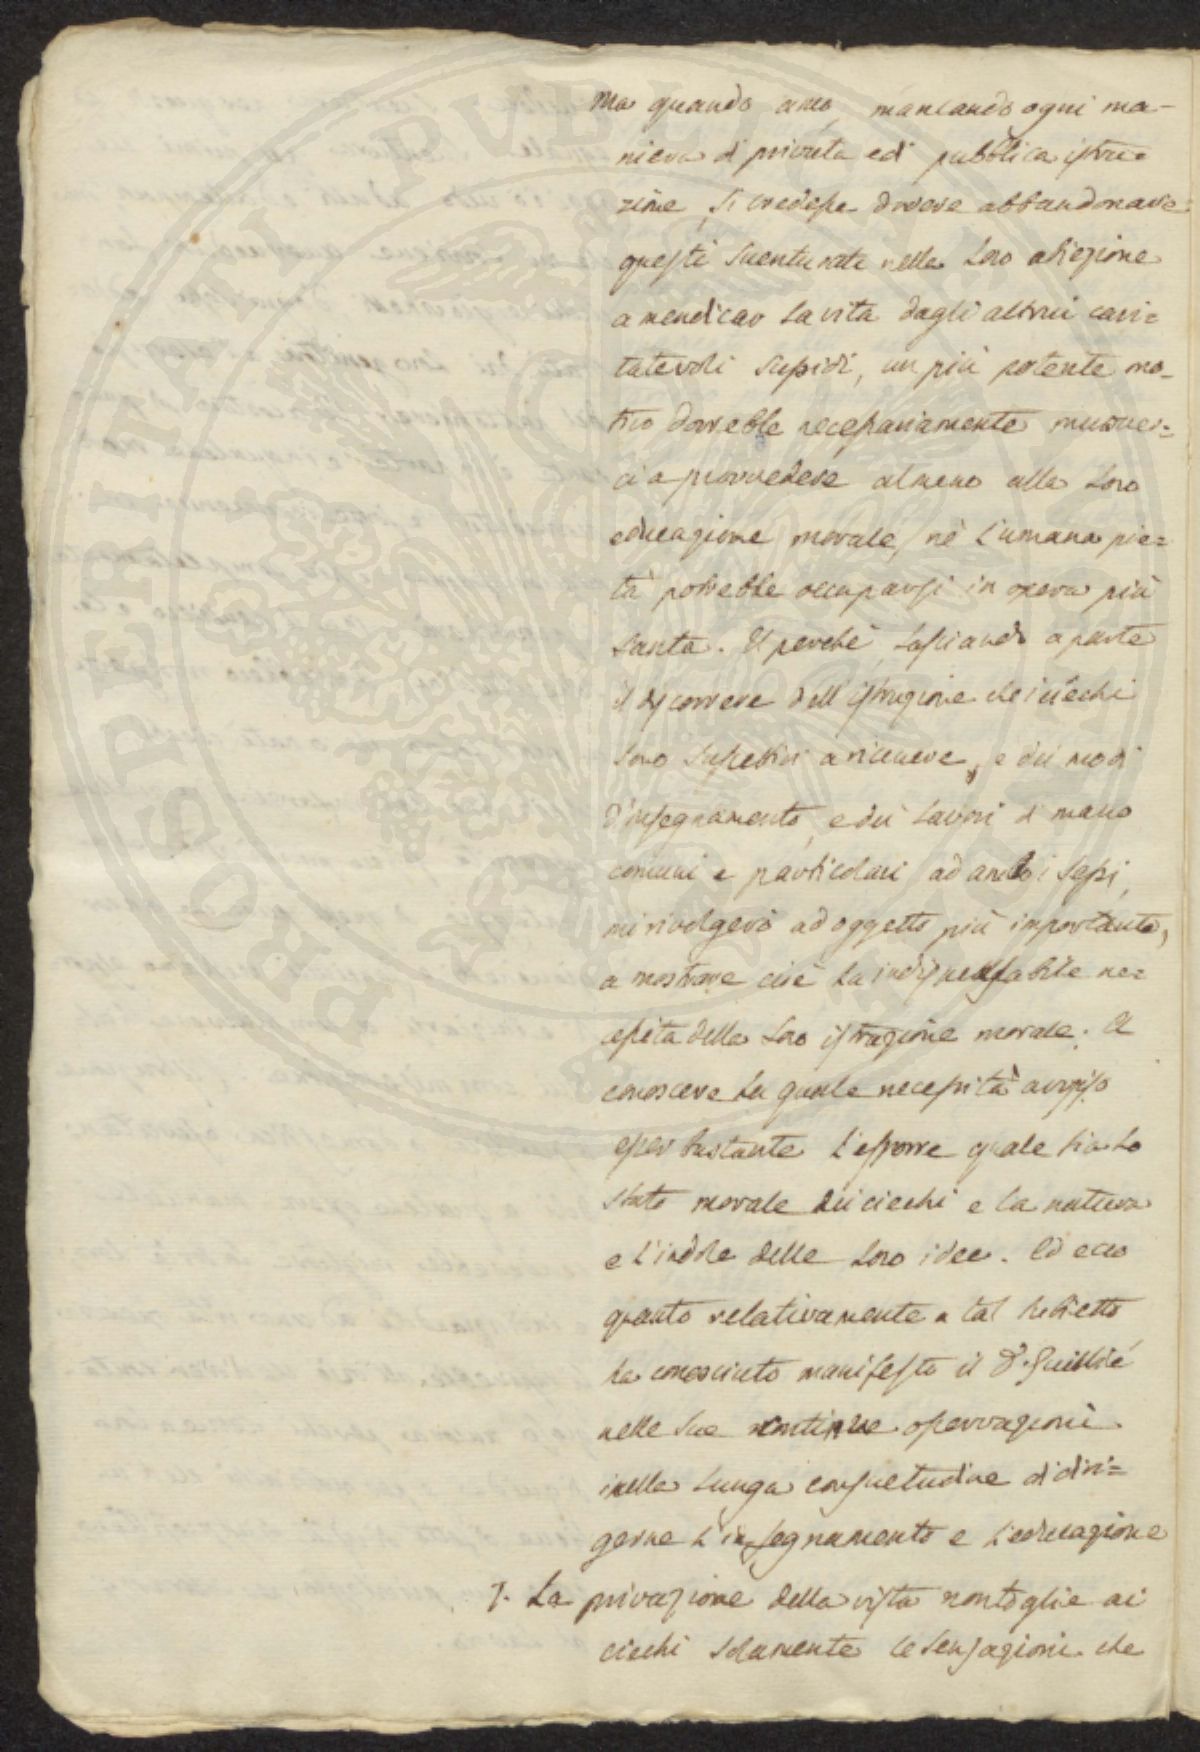 Ma quando anco, mancando ogni ma-
niera di privata ed pubblica istru=
zione, si credesse dovere abbandonare
questi sventurati nella loro abiezione
a mendicar la vita dagli altrui cari=
tatevoli sussidi, un più potente mo-
tivo dovrebbe necessariamente muover=
ci a provvedere almeno alla loro
educazione morale, nè l'umana pie=
tà potrebbe occuparsi in opera più
santa. Il perchè, lasciando a parte
il discorrere dell'istruzione che i ciechi
sono suscettivi a ricevere, e dei modi
d'insegnamento, e dei lavori di mano
comuni e particolari ad ambi i sessi,
mi rivolgerò ad oggetto più importante,
a mostrare cioè la indispensabile ne=
cessità della loro istruzione morale. A
conoscere la quale necessità avviso
esser bastante l'esporre quale sia lo
stato morale dei ciechi e la natura
e l'indole delle loro idee. Ed ecco
quanto relativamente a tal subietto
ha conosciuto manifesto il D.r Guillié
nelle sue continue osservazioni
inella lunga consuetudine di diri=
gerne l'insegnamento e l'educazione
I. La privazione della vista non toglie ai
ciechi solamente le sensazioni che
PROSPERITATI PVBLICAE